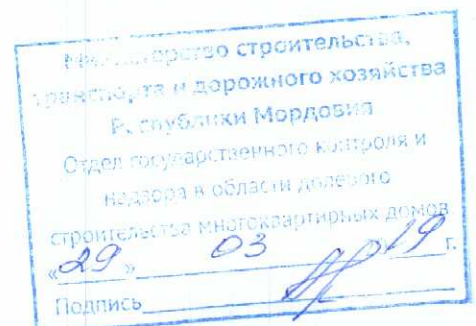 Министерство строительства,
транспорта и дорожного хозяйства
Республики Мордовия
Отдел государственного контроля и
надзора в области долевого
строительства многоквартирных домов
«29» 03 19 г.
Подпись